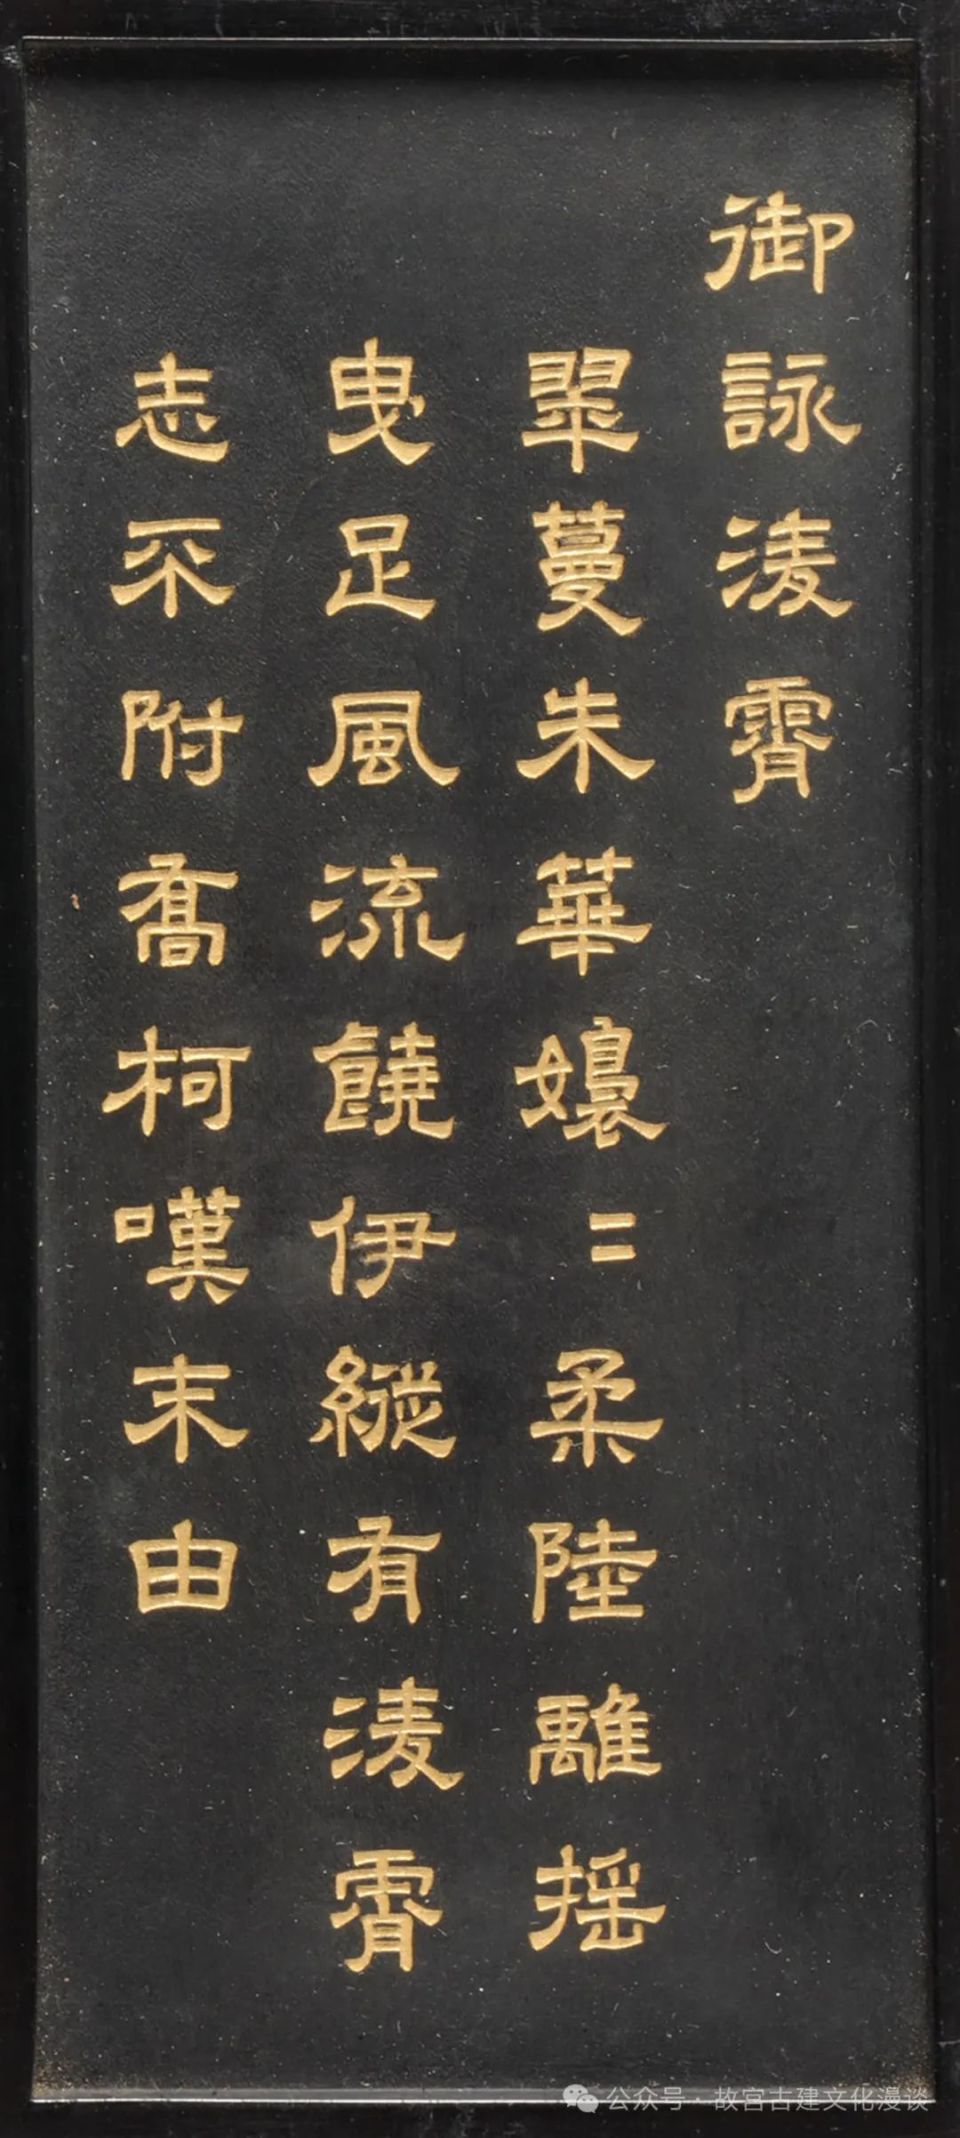 御詠凌霄
翠蔓朱華嬝〻柔陸離揺
曳足風流饒伊縱有凌霄
志不附喬柯嘆末由
公众号·故宫古建文化漫谈